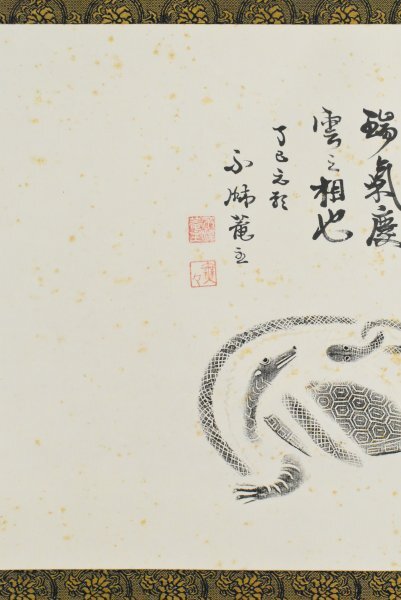 瑞氣慶
雲之相也
丁巳元
不
菴主